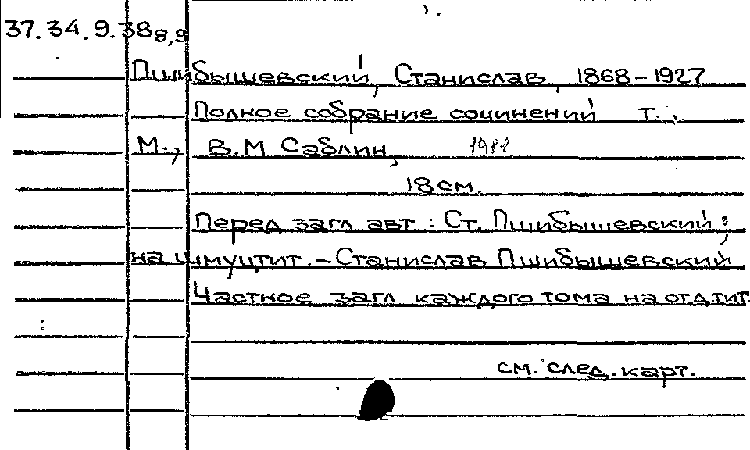 37.34.9.38 8,9
Пшибышевский, Станислав, 1868-1927
Полное собрание сочинений Т.
М., В.М Саблин, 1911
18 см.
Перед загл авт : Ст. Пшибышевский;
на шмуцтит. - Станислав Пшибышевский
Частное загл каждого тома на отд. тит.
см. след. карт.